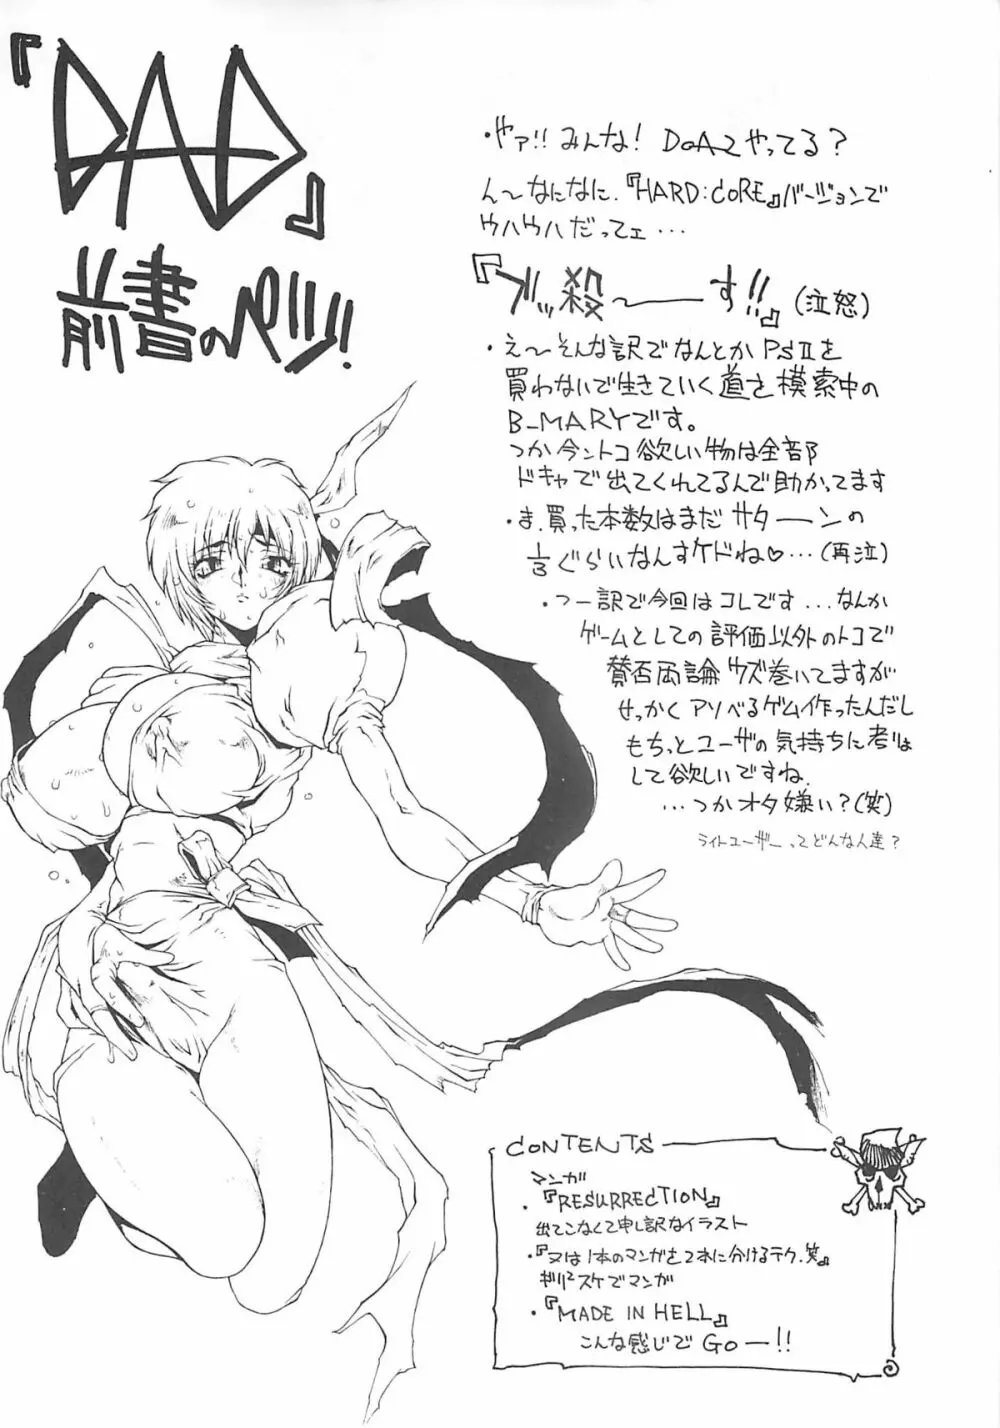 『DAD』
前書のペェジ!
・やァ!! みんな! DOA2やってる?
ん〜なになに、『HARD:CORE』バージョンで
ウハウハだってェ…
『ブッ殺〜――す!!』(泣怒)
・え〜そんな訳でなんとかPSⅡを
買わないで生きていく道を模索中の
B_MARYです。
つか今ントコ欲しい物は全部
ドキャで出てくれてるんで助かってます
・ま、買った本数はまだサターンの
1/3ぐらいなんすケドね♡…(再泣)
・つー訳で今回はコレです...なんか
ゲームとしての評価以外のトコで
賛否両論ウズ巻いてますが
せっかくアソべるゲム作ったんだし
もちっとユーザの気持ちに考りょ
して欲しいですね.
…つかオタ嫌い?(笑)
ライトユーザーってどんな人達?
CONTENTS
マンガ
・『RESURRECTION』
出てこなくて申し訳なイラスト
・『又は1本のマンガを2本に分けるテク.笑』
ギリ²スケでマンガ
・『MADE IN HELL』
こんな感じでGo―!!